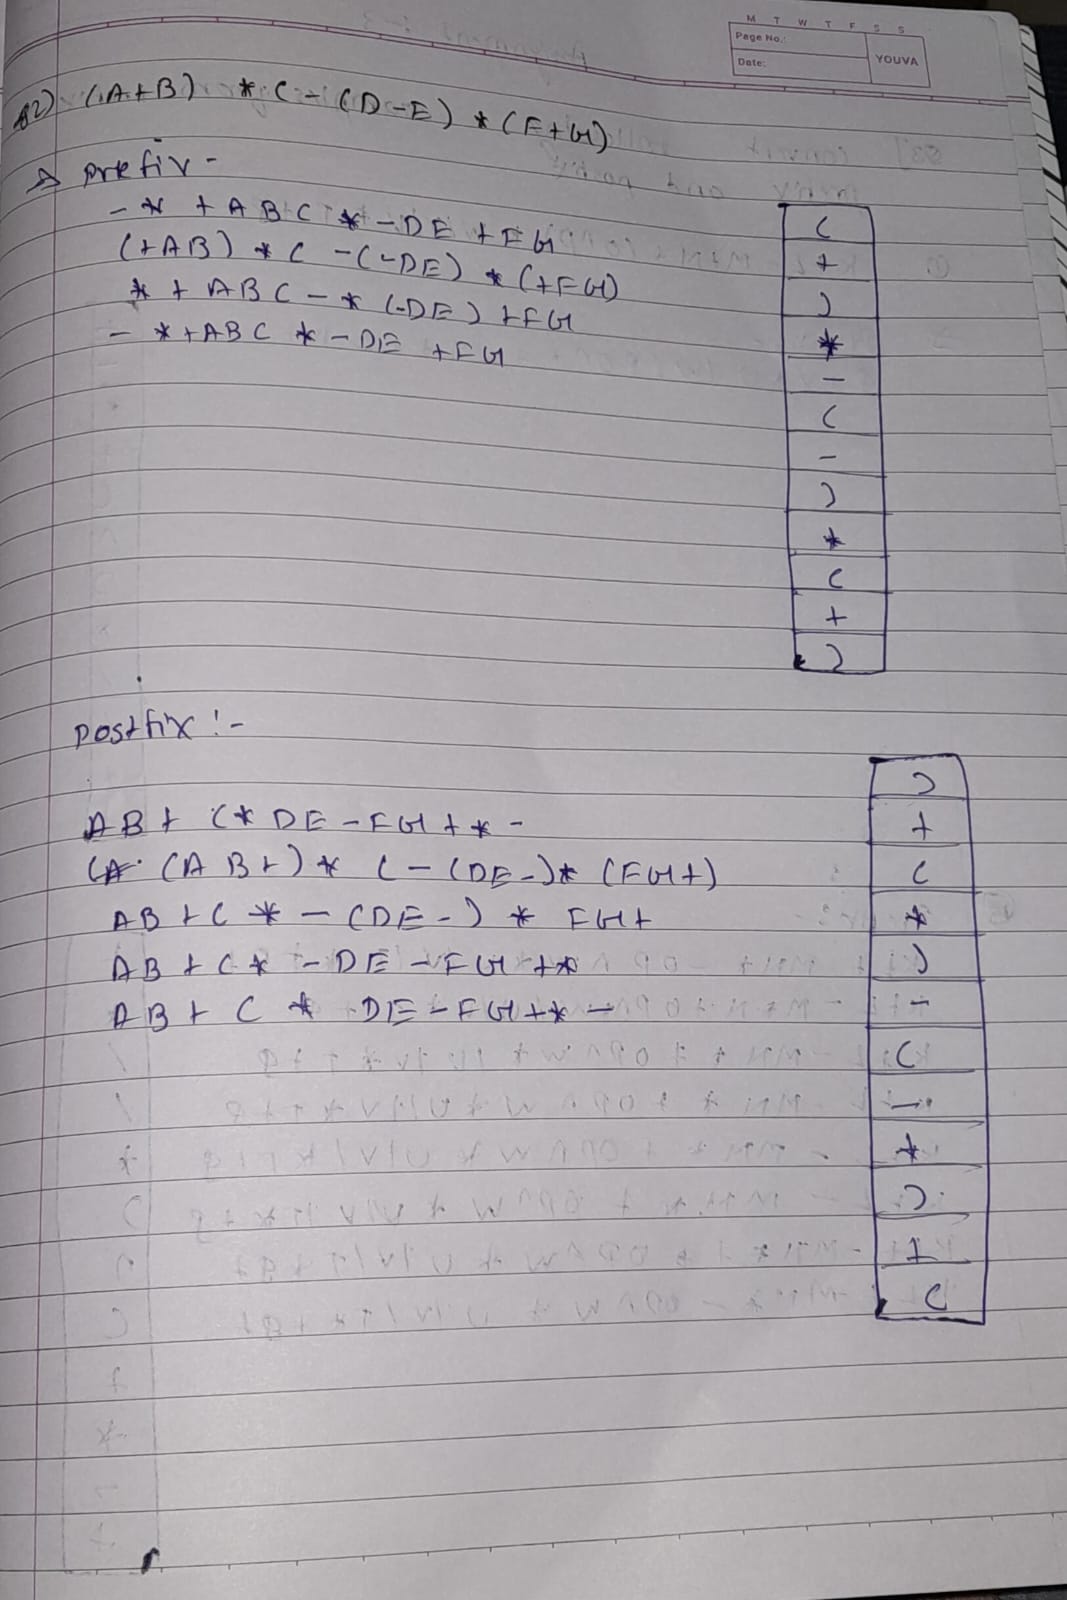 M T W T F S S
Page No.:
Date:
YOUVA
Q2) (A+B) * C - (D-E) * (F+G)
→ Prefix -
- * + A B C * - DE + FG
(+AB) * C - (-DE) * (+FG)
* + ABC - * (-DE) + FG
- * +ABC * - DE +FG
(
+
)
*
-
(
-
)
*
(
+
)
Postfix :-
AB+ C* DE - FG + * -
(AB+) * C - (DE-) * (FG+)
AB + C * - (DE-) * FG+
AB + C * - DE - FG + *
AB + C * DE - FG + * -
)
+
(
*
)
-
(
-
*
)
+
(